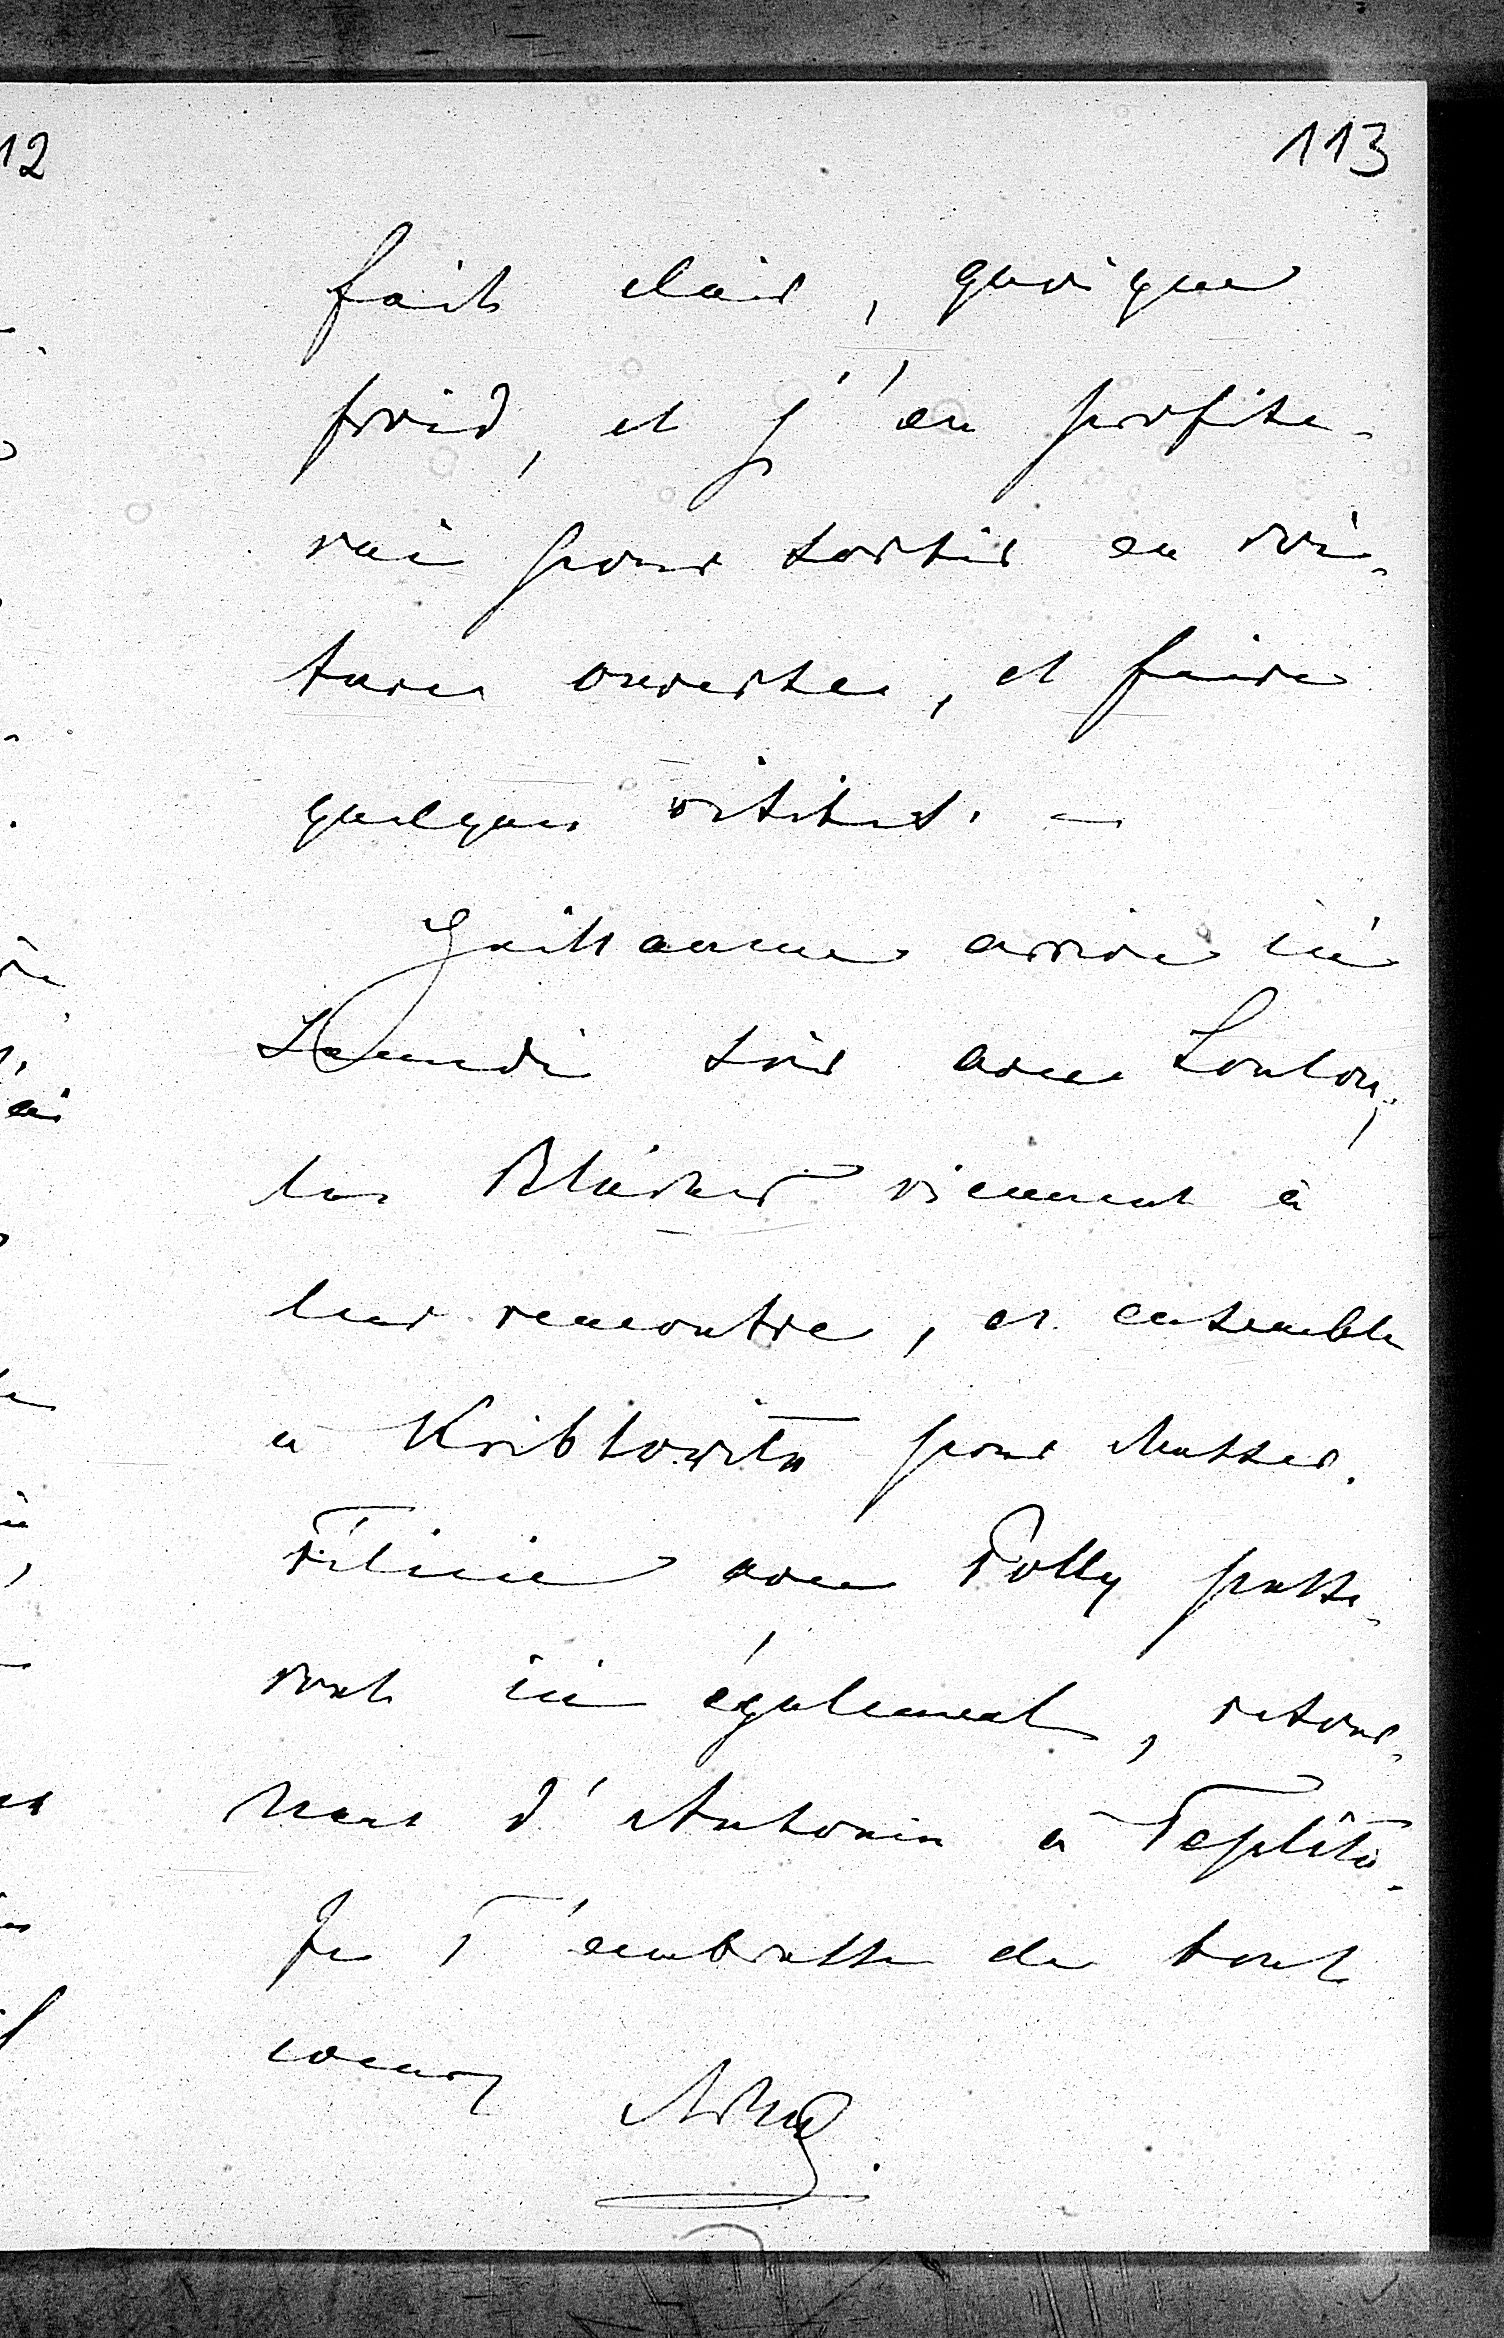 113
fait clair, quoique
froid, et j'en profite-
rai pour sortir en voi-
ture ouverte, et faire
quelques visites. —
Guillaume arrive ici
Samedi soir avec Loulou,
les Blücher viennent à
leur rencontre, et ensemble
à Kriblowitz pour chasser.
Félicie avec Polly passe-
ront ici également, retour-
nant d'Antonin à Teplitz.
Je T'embrasse de tout
coeur